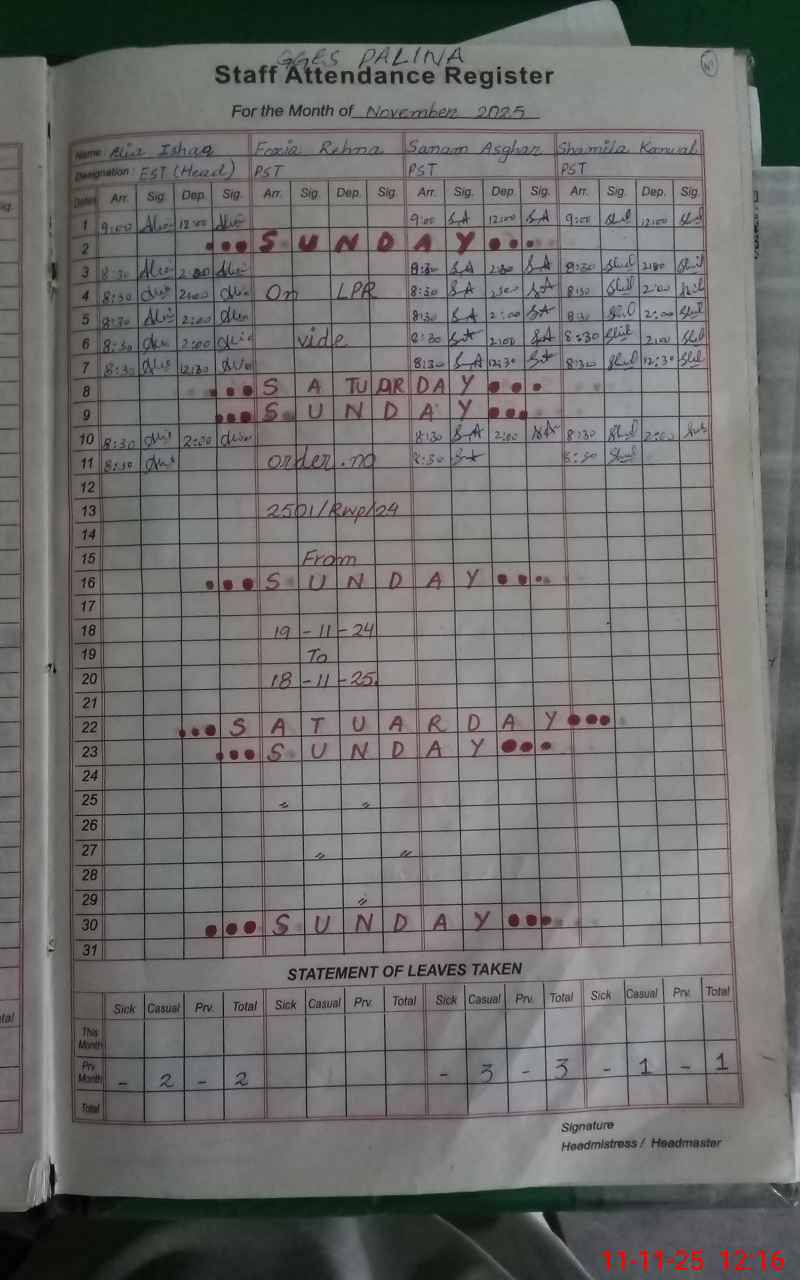 GGES PALINA
Staff Attendance Register
For the Month of November 2025
Name: Alia Ishaq Fozia Rehna Sanam Asghar Shamila Kanwal
Designation: EST (Head) PST PST PST
Dates Arr. Sig. Dep. Sig. Arr. Sig. Dep. Sig. Arr. Sig. Dep. Sig. Arr. Sig. Dep. Sig.
1 9:00 12:00 9:00 SA 12:00 SA 9:00 12:00
2 SUNDAY
3 8:30 2:00 8:30 SA 2:00 SA 8:30 2:00
4 8:30 2:00 On LPR 8:30 SA 2:00 SA 8:30 2:00
5 8:30 2:00 8:30 SA 2:00 SA 8:30 2:00
6 8:30 2:00 vide 8:30 SA 2:00 SA 8:30 2:00
7 8:30 12:30 8:30 SA 12:30 SA 8:30 12:30
8 SATURDAY
9 SUNDAY
10 8:30 2:00 8:30 SA 2:00 SA 8:30 2:00
11 8:30 order.no 8:30 SA 8:30
12
13 2501/Rwp/24
14
15 From
16 SUNDAY
17
18 19-11-24
19 To
20 18-11-25.
21
22 SATUARDAY
23 SUNDAY
24
25 " "
26
27 " "
28
29 "
30 SUNDAY
31
STATEMENT OF LEAVES TAKEN
Sick Casual Prv. Total Sick Casual Prv. Total Sick Casual Prv. Total Sick Casual Prv. Total
This Month
Prv. Month - 2 - 2 - 3 - 3 - 1 - 1
Total
Signature
Headmistress / Headmaster
11-11-25 12:16